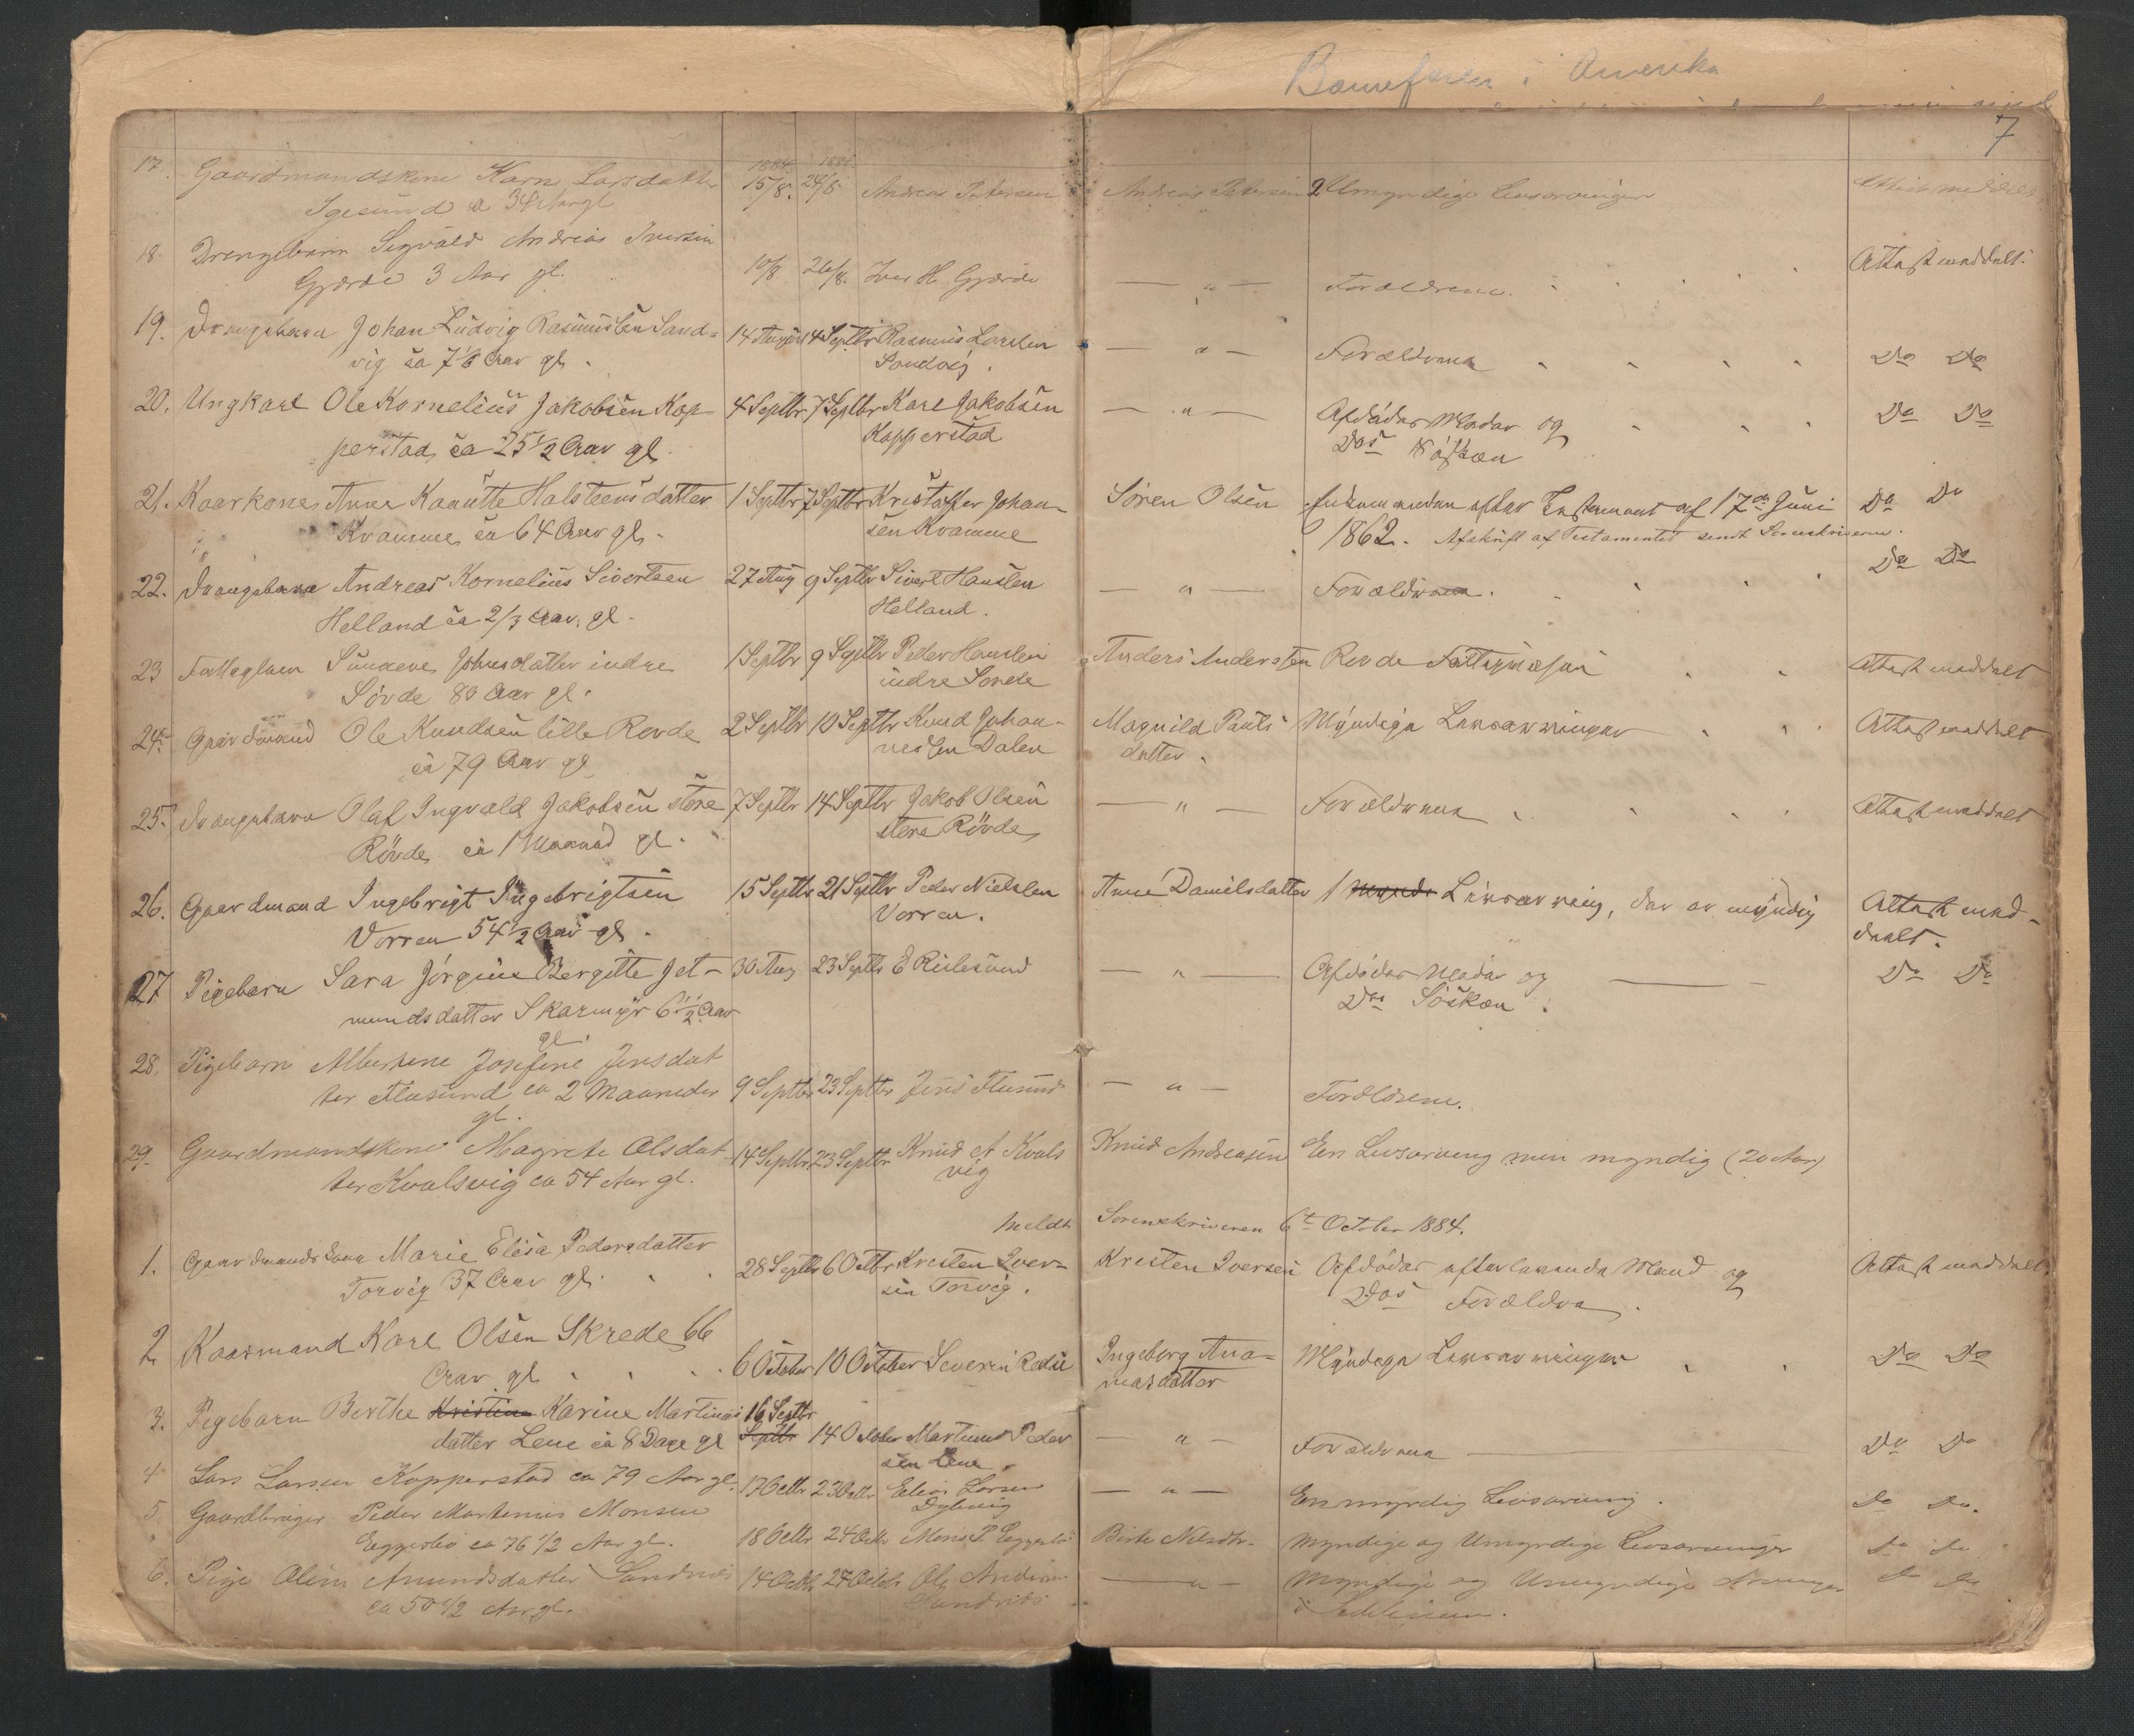 Barnefaren i Amerika
7
17. Gaardmandskone Karne Larsdatter 1884 15/8. 24/8 Andreas Petersen Andreas Petersen 2 Umyndige Livsarvinger Attest meddelt
Igesund ca 34 Aar gl
18. Drengebarn Sigvald Andreas Iversen
Gjerde 3 Aar gl. 10/8 26/8. Iver H. Gjerde — " — Forældrene. Attest meddelt.
19. Drengebarn Johan Ludvig Rasmussen Sand= 14 August 4 Septbr Rasmus Larsen — " — Forældrene Do Do
vig ca 7 1/6 Aar gl. Sandvig.
20. Ungkarl Ole Kornelius Jakobsen Kop- 4 Septbr 7 Septbr Karl Jakobsen — " — Afdødes Moder og Do Do
perstad ca 25 1/2 Aar gl. Kopperstad Dos Søsken
21. Kaarkone Anne Kanutte Halsteensdatter 1 Septbr 7 Septbr Kristoffer Johan- Søren Olsen Enkemanden efter Testament af 17de Juni Do Do
Kvamme ca 64 Aar gl. sen Kvamme 1862. Afskrift af Testamentet sendt Sorenskriveren.
22. Drengebarn Andreas Kornelius Sivertsen 27 Aug 9 Septbr Sivert Hansen — " — Forældrene. Do Do
Helland ca 2/3 Aar gl. Helland.
23 Fattiglem Sunneve Johnsdatter indre 1 Septbr 9 Septbr Peder Hansen Anders Andersen Rovde Fattigvæsen Attest meddelt
Sørde 80 Aar gl. indre Sørde
24. Gaardmand Ole Knudsen lille Rovde 2 Septbr 10 Septbr Knud Johan- Magnild Pauls Myndige Livsarvinger Attest meddelt
ca 79 Aar gl nessen Dalen datter.
25. Drengebarn Olaf Ingvald Jakobsen store 7 Septbr 14 Septbr Jakob Olsen — " — Forældrene Attest meddelt
Rövde ca 1 Maaned gl. store Rövde
26. Gaardmand Ingebrigt Ingebrigtsen 15 Septbr 21 Septbr Peder Nielsen Anne Danielsdatter 1 Myndi Livsarving, der er myndig Attest med-
Vorren 54 1/2 Aar gl. Vorren. delt.
27 Pigebarn Sara Jörgine Bergitte Jet- 30 Aug 23 Septbr E Riilesund — " — Afdødes Moder og Do Do
mundsdatter Skarmyr 6 1/2 Aar Dos Søsken.
gl.
28. Pigebarn Albertine Josefine Jensdat
ter Flusund ca 2 Maaneder 9 Septbr 23 Septbr Jens Flusund — " — Forældrene.
gl.
29. Gaardmandskone Magrete Olsdat- 14 Septbr 23 Septbr Knud A Kvals Knud Andreasen En Livsarving men myndig (20 Aar)
ter Kvalsvig ca 54 Aar gl. vig
Meldt Sorenskriveren 6t October 1884.
1. Gaardmandskone Marie Elisa Pedersdatter 28 Septbr 6 Octbr Kristen Iver- Kristen Iversen Afdødes efterlevende Mand og Attest meddelt.
Torvig 37 Aar gl. sen Torvig. Dos Forældre.
2 Kaarmand Karl Olsen Skrede 66
Aar gl 6 October 10 October Severin Ingeborg Ana- Myndige Livsarvinger Do Do
masdatter
3. Pigebarn Berthe Kristine Karine Martinus 16 Septbr
datter Lene ca 8 Dage gl Septbr 14 October Martinus Peder — " — Forældrene Do Do
sen Lene.
4 Lars Larsen Kopperstad ca 79 Aar gl. 17 Octbr 23 Octbr Elias Larsen — " — En myndig Livsarving. Do Do.
5. Gaardbruger Peder Martinus Monsen Dybvig
Eggesbø ca 76 1/2 Aar gl. 18 Octbr 24 Octbr Mons P. Eggesbø Birte Nilsdtr. Myndige og Umyndige Livsarvinger Do Do
6. Pige Oline Amundsdatter Sandnes 14 Octbr 27 Octbr Ole — " — Myndige og Umyndige Arvinger Do Do
ca 50 1/2 Aar gl.